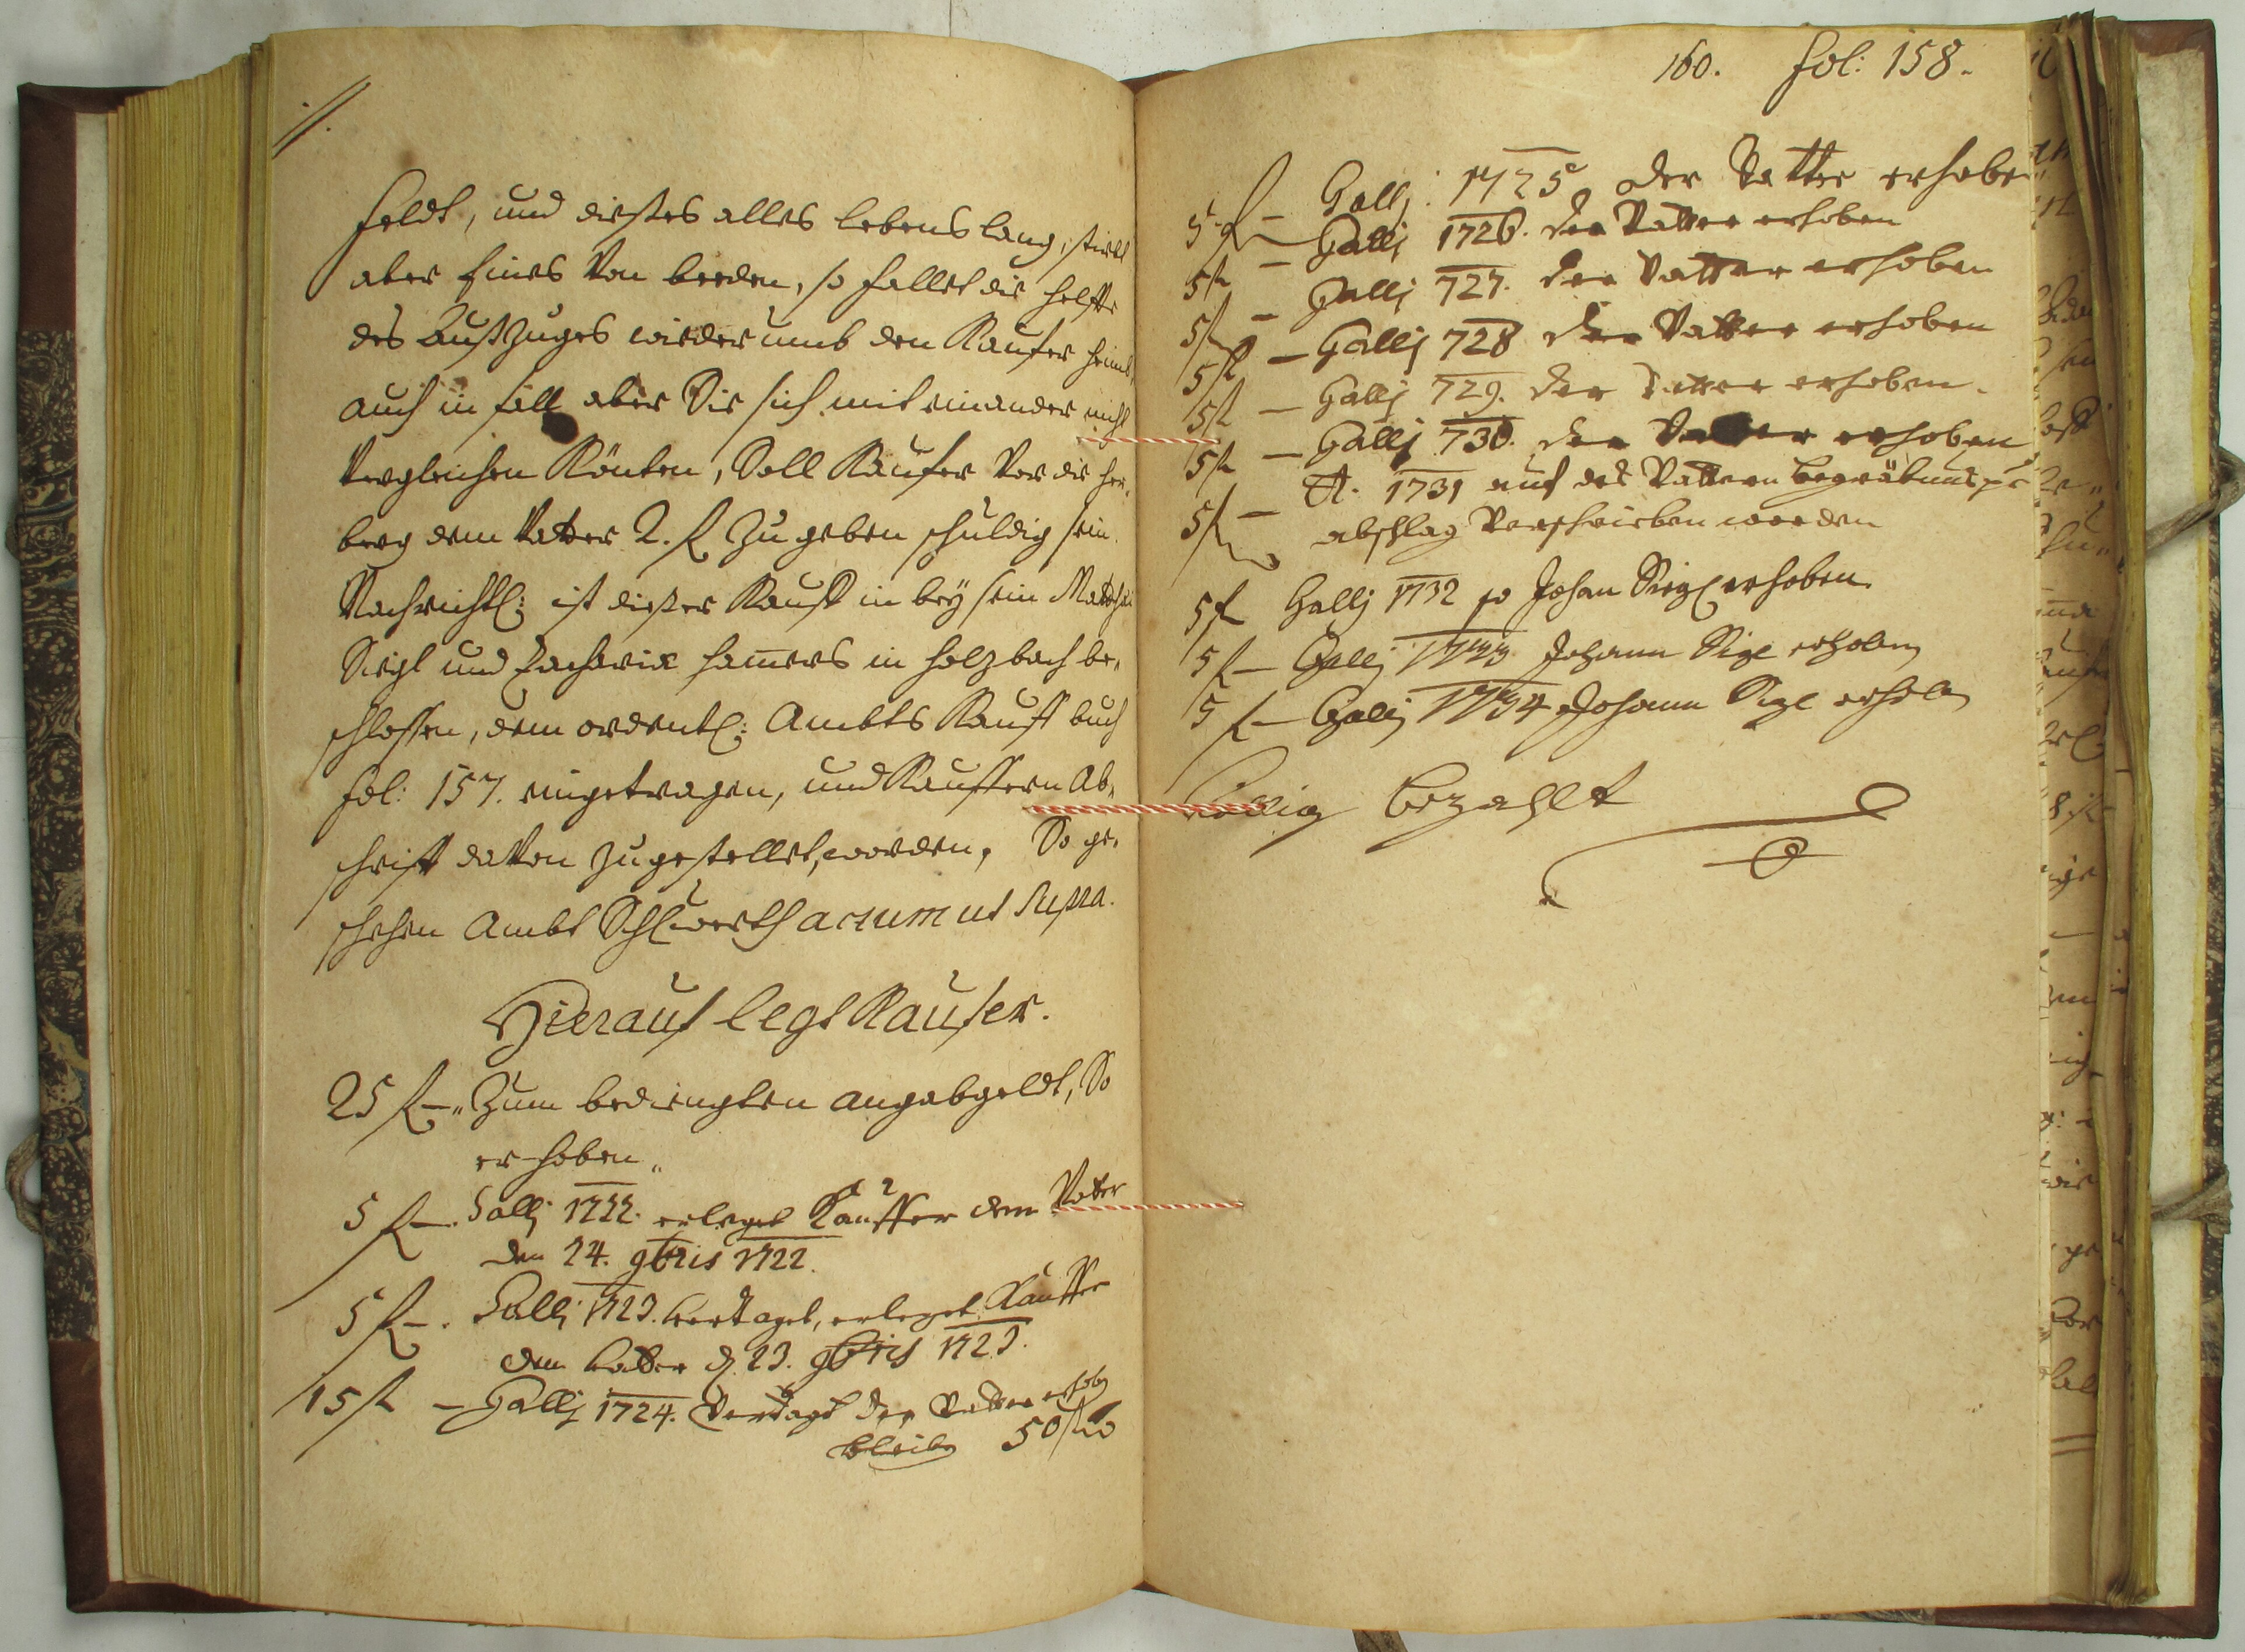 //.
feldt, und dießes alles lebens lang, stirbt
aber Eines Von beeden, so fallet die helfte
des Außzuges wiederumb den Kaufer heimb,
auch in fall aber Sie sich mit einander nicht
Vergleichen Könten, Soll Kaufer Vor die her,
berg dem Vatter 2. f. zu geben schuldig sein.
Nachrichtl: ist dießer Kauff in bey sein Matthia
Siegl und Zachariæ hamers in Holzbach be,
schlossen, dem ordentl: Ambts Kauff buch
fol: 157. eingetragen, und Kauffern Ab,
schrifft darvon zugestellet, worden, So ge,
schehen Ambt actum ut supra.
Hierauf legt Kaufer.
25 f – Zum bedingten angabgeldt, So
erhoben
5 f –. Galli 1722. erleget Käuffer dem Vater
den 24. 9bris 1722.
5 f –. Galli 1723. vertaget, erleget Käuffer
dem Vatter d. 23. 9bris 1723.
15 f – Gallj 1724. Vertagt der Vatter erhobn
bleibn 50 f
160. fol: 158.
5 f – Gallj: 1725 der Vatter erhoben
5 f – Gallj 1726. der Vatter erhoben
5 f – Gallj 727. der Vatter erhoben
5 f – Gallj 728 der Vatter erhoben
5 f – Gallj 729. der Vatter erhoben.
5 f – Gallj 730. der Vatter erhoben
5 f – A. 1731 auf des Vattern begräbnus p
abschlag Verschrieben worden
5 f Gallj 1732 so Johan Siegl erhoben
5 f – Gallj 1733 Johann Sigl erhoben
5 f – Gallj 1734 Johann Sigl erhobn
Völlig bezahlt